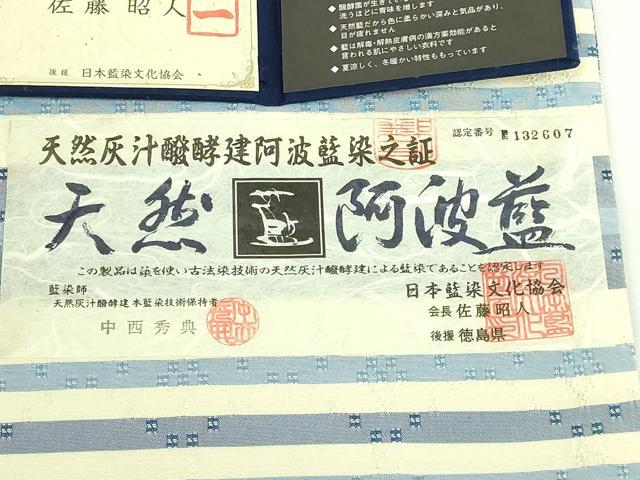 佐藤昭人
後援 日本藍染文化協会
洗うほどに青味を増します
◆天然藍だから色に柔らかい深みと気品があり、
目が疲れません
◆藍は解毒・解熱皮膚病の漢方薬効能があると
言われる肌にやさしい衣料です
◆夏涼しく、冬暖かい特性ももっています
天然灰汁醗酵建阿波藍染之証
認定番号 132607
天然 藍 阿波藍
この製品は藍を使い古法染技術の天然灰汁醗酵建による藍染であることを認定します
藍染師
天然灰汁醗酵建本藍染技術保持者
中西秀典
日本藍染文化協会
会長 佐藤昭人
後援 徳島県